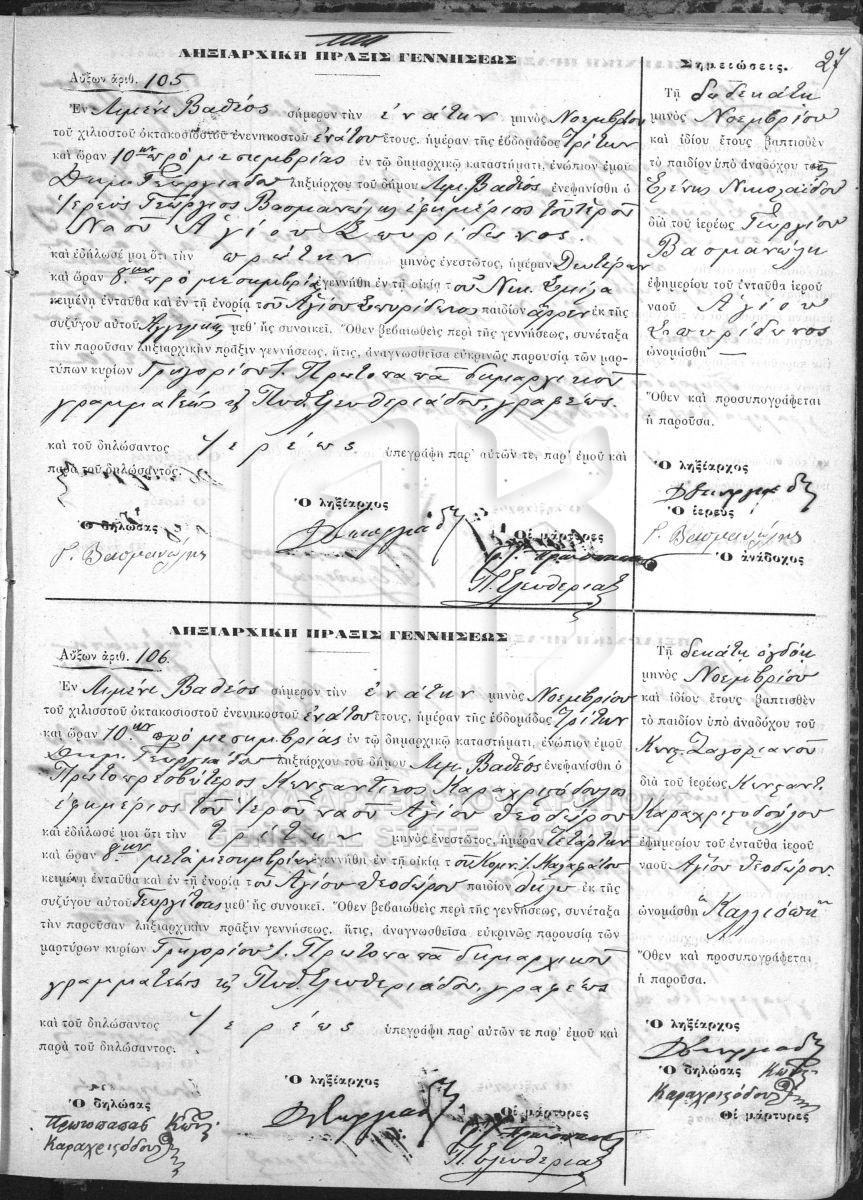 27
ΛΗΞΙΑΡΧΙΚΗ ΠΡΑΞΙΣ ΓΕΝΝΗΣΕΩΣ
Αὔξων ἀριθ. 105
Ἐν Λιμένι Βαθέος σήμερον τὴν ἐνάτην μηνὸς Νοεμβρίου
τοῦ χιλιοστοῦ ὀκτακοσιοστοῦ ἐνενηκοστοῦ ἐνάτου ἔτους, ἡμέραν τῆς ἑβδομάδος Τρίτην
καὶ ὥραν 10ην πρὸ μεσημβρίας ἐν τῷ δημαρχικῷ καταστήματι, ἐνώπιον ἐμοῦ
Δημ. Γεωργιάδου ληξιάρχου τοῦ δήμου Λιμ. Βαθέος ἐνεφανίσθη ὁ
Ἱερεὺς Γεώργιος Βασμανώλης ἐφημέριος τοῦ Ἱεροῦ
Ναοῦ Ἁγίου Σπυρίδωνος.
καὶ ἐδήλωσέ μοι ὅτι τὴν πρώτην μηνὸς ἐνεστῶτος, ἡμέραν Δευτέραν
καὶ ὥραν 8ην πρὸ μεσημβρίας ἐγεννήθη ἐν τῇ οἰκίᾳ τοῦ Νικ.
κειμένῃ ἐνταῦθα καὶ ἐν τῇ ἐνορίᾳ τοῦ Ἁγίου Σπυρίδωνος παιδίον ἄρρεν ἐκ τῆς
συζύγου αὐτοῦ Ἀγγελικῆς μεθ' ἧς συνοικεῖ. Ὅθεν βεβαιωθεὶς περὶ τῆς γεννήσεως, συνέταξα
τὴν παροῦσαν ληξιαρχικὴν πρᾶξιν γεννήσεως, ἥτις, ἀναγνωσθεῖσα εὐκρινῶς παρουσίᾳ τῶν μαρ-
τύρων κυρίων Γρηγορίου Ι. Πρωτοπαπᾶ δημαρχικοῦ
γραμματέως κ Πυθ. Ἐλευθεριάδου, γραφέως.
καὶ τοῦ δηλώσαντος Ἱερέως ὑπεγράφη παρ' αὐτῶν τε, παρ' ἐμοῦ καὶ
παρὰ τοῦ δηλώσαντος.
Ὁ ληξίαρχος
Ὁ δηλώσας
Οἱ μάρτυρες
Γ. Βασμανώλης
Π. Ἐλευθεριάδ
Σημειώσεις.
Τῇ δωδεκάτῃ
μηνὸς Νοεμβρίου
καὶ ἰδίου ἔτους βαπτισθὲν
τὸ παιδίον ὑπὸ ἀναδόχου τῆς
Ἑλένης Νικολαΐδου
διὰ τοῦ ἱερέως Γεωργίου
Βασμανώλη
ἐφημερίου τοῦ ἐνταῦθα ἱεροῦ
ναοῦ Ἁγίου
Σπυρίδωνος
ὠνομάσθη —
Ὅθεν καὶ προσυπογράφεται
ἡ παροῦσα.
Ὁ ληξίαρχος
Ὁ ἱερεὺς
Γ. Βασμανώλης
Ὁ ἀνάδοχος
ΛΗΞΙΑΡΧΙΚΗ ΠΡΑΞΙΣ ΓΕΝΝΗΣΕΩΣ
Αὔξων ἀριθ. 106
Ἐν Λιμένι Βαθέος σήμερον τὴν ἐνάτην μηνὸς Νοεμβρίου
τοῦ χιλιοστοῦ ὀκτακοσιοστοῦ ἐνενηκοστοῦ ἐνάτου ἔτους, ἡμέραν τῆς ἑβδομάδος Τρίτην
καὶ ὥραν 10ην πρὸ μεσημβρίας ἐν τῷ δημαρχικῷ καταστήματι, ἐνώπιον ἐμοῦ
Δημ. Γεωργιάδου ληξιάρχου τοῦ δήμου Λιμ. Βαθέος ἐνεφανίσθη ὁ
Πρωτοπρεσβύτερος Κωνσταντῖνος Καραχριστόδουλος
ἐφημέριος τοῦ Ἱεροῦ ναοῦ Ἁγίου Θεοδώρου
καὶ ἐδήλωσέ μοι ὅτι τὴν τρίτην μηνὸς ἐνεστῶτος, ἡμέραν Τετάρτην
καὶ ὥραν 8ην μετὰ μεσημβρίαν ἐγεννήθη ἐν τῇ οἰκίᾳ τοῦ Κομν. Ι.
κειμένῃ ἐνταῦθα καὶ ἐν τῇ ἐνορίᾳ τοῦ Ἁγίου Θεοδώρου παιδίον θῆλυ ἐκ τῆς
συζύγου αὐτοῦ Γεωργίτσας μεθ' ἧς συνοικεῖ. Ὅθεν βεβαιωθεὶς περὶ τῆς γεννήσεως, συνέταξα
τὴν παροῦσαν ληξιαρχικὴν πρᾶξιν γεννήσεως, ἥτις, ἀναγνωσθεῖσα εὐκρινῶς παρουσίᾳ τῶν
μαρτύρων κυρίων Γρηγορίου Ι. Πρωτοπαπᾶ δημαρχικοῦ
γραμματέως κ Πυθ. Ἐλευθεριάδου, γραφέως
καὶ τοῦ δηλώσαντος Ἱερέως ὑπεγράφη παρ' αὐτῶν τε παρ' ἐμοῦ καὶ
παρὰ τοῦ δηλώσαντος.
Ὁ ληξίαρχος
Ὁ δηλώσας
Οἱ μάρτυρες
Πρωτοπαπᾶς Κων
Καραχριστόδουλ
Π. Ἐλευθεριάδ
Τῇ δεκάτῃ ὀγδόῃ
μηνὸς Νοεμβρίου
καὶ ἰδίου ἔτους βαπτισθὲν
τὸ παιδίον ὑπὸ ἀναδόχου τοῦ
Κωνσ. Ζαγοριανοῦ
διὰ τοῦ ἱερέως Κωνσταντ.
Καραχριστοδούλου
ἐφημερίου τοῦ ἐνταῦθα ἱεροῦ
ναοῦ Ἁγίου Θεοδώρου.
ὠνομάσθη "Καλλιόπη"
Ὅθεν καὶ προσυπογράφεται
ἡ παροῦσα.
Ὁ ληξίαρχος
Ὁ δηλώσας Κων
Καραχριστόδουλ
Οἱ μάρτυρες
GENERAL STATE ARCHIVES